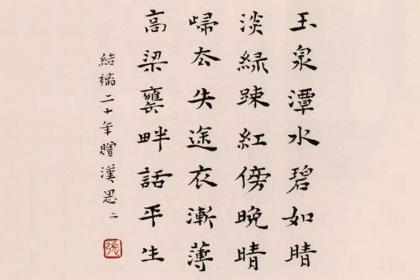 玉泉潭水碧如晴
淡綠踈紅傍晚晴
歸去失途衣漸薄
高梁甕畔話平生
結褵二十年贈漢思 二
張